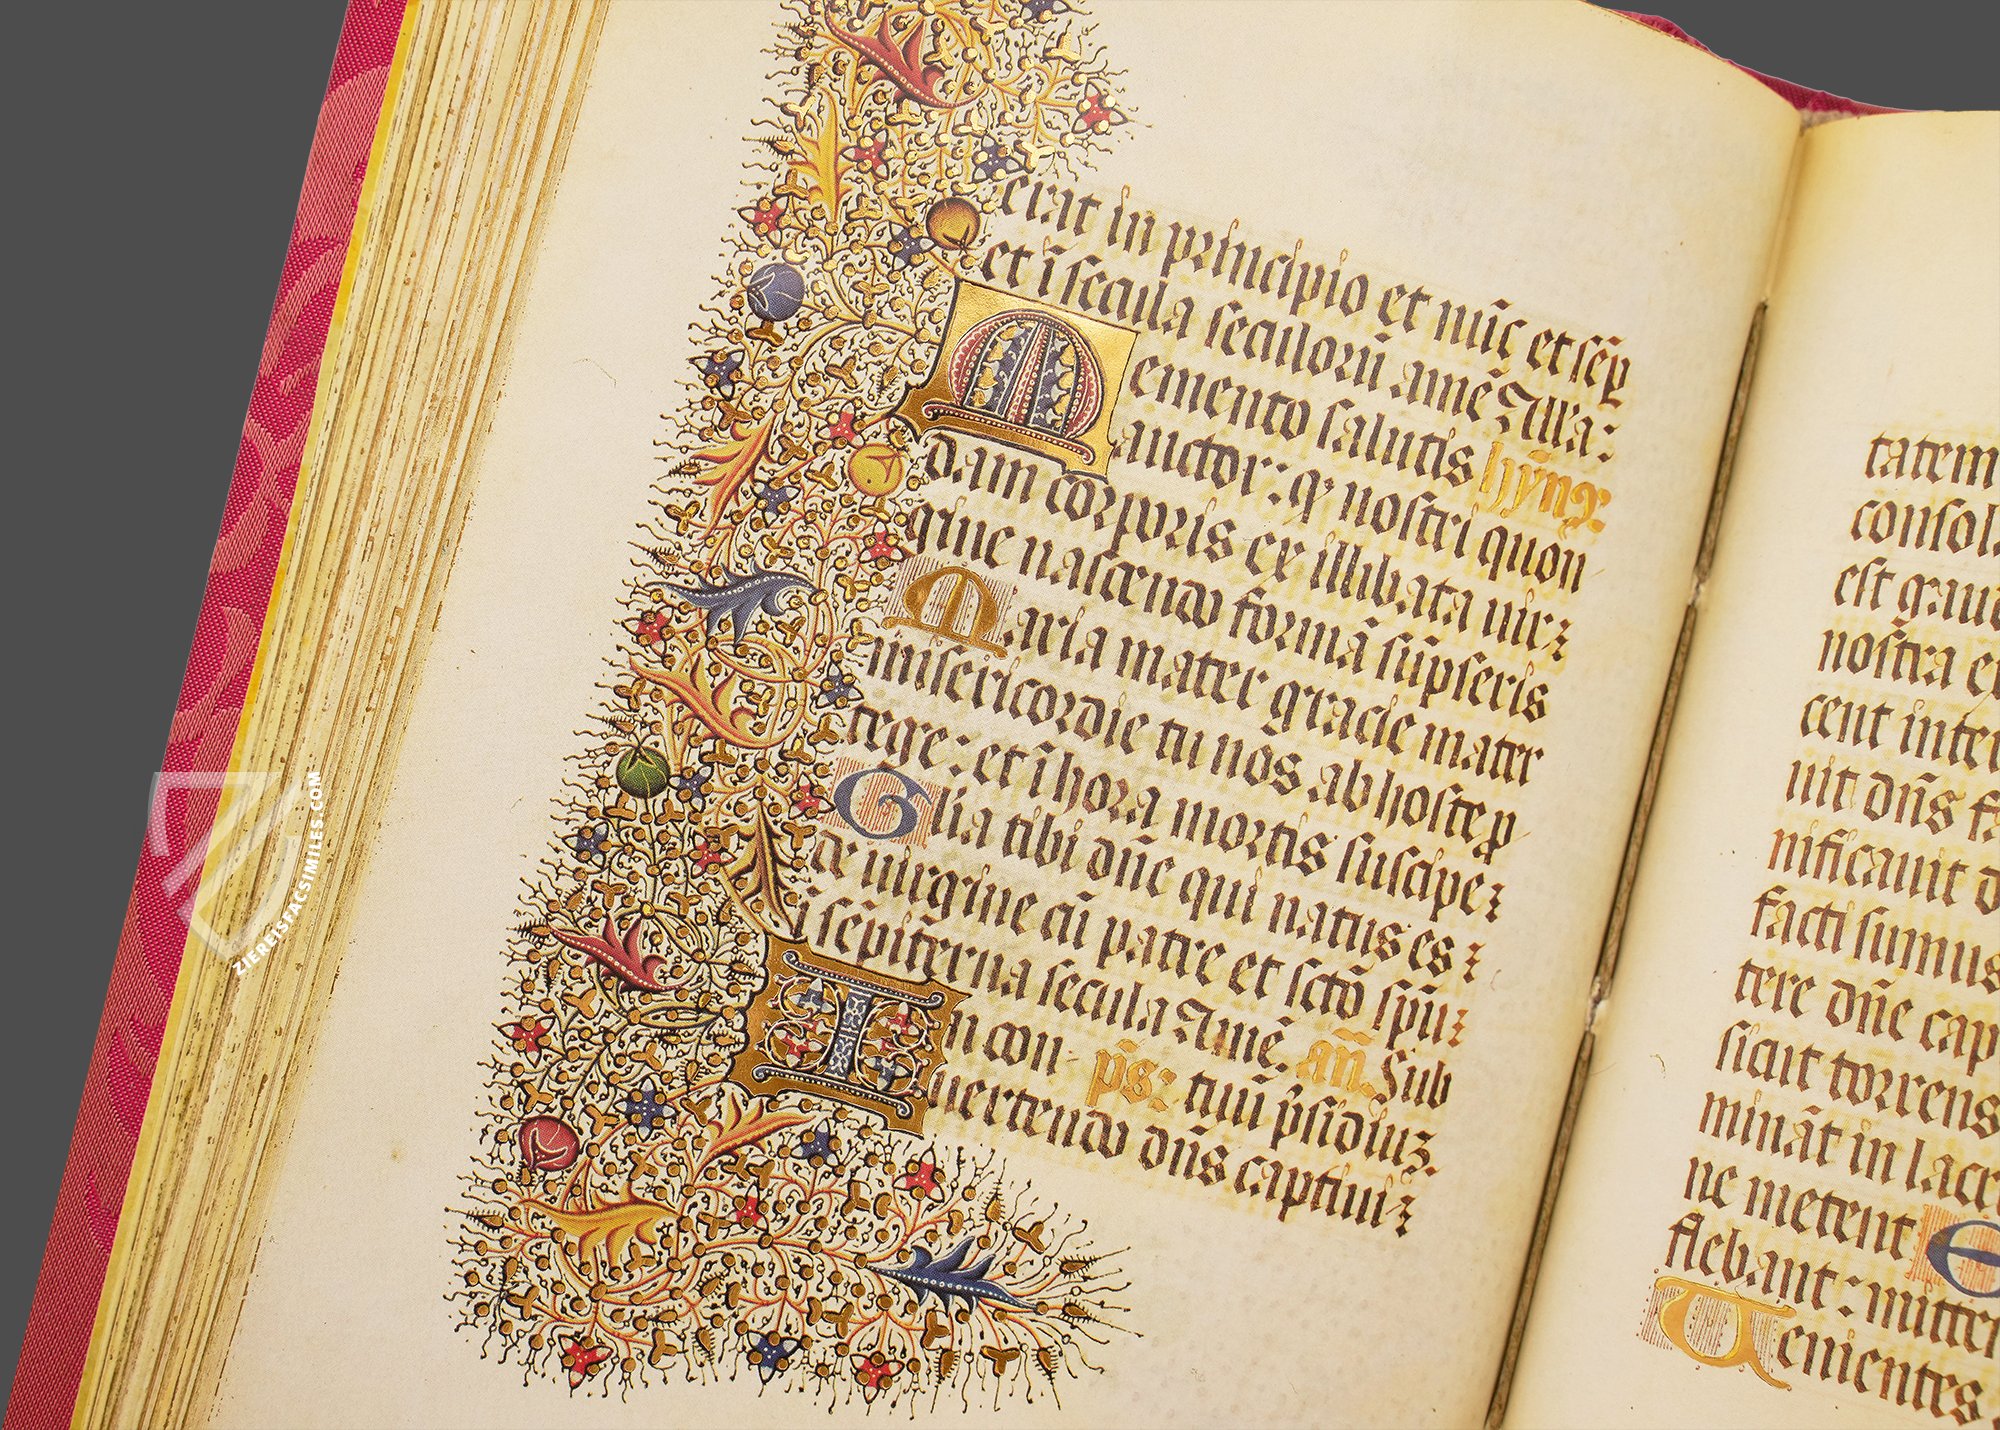 erat in principio et nūc et sēp
et ī secula seculorū amē Alla:
Memento salutis hȳnꝰ
auctor: ꝙ nostri quon
dam corporis ex illibata uir⁊
gine nascendo formā sūpseris
Maria mater gracie mater
misericordie tu nos ab hoste ꝓ
tege: et ī hora mortis suscipe⁊
Glīa tibi dn̄e qui natus es⁊
de uirgine cū patre et sctō spū⁊
ī sēpiterna secula Amē. an̄. Sub
In con- ps̄: tuū p̄sidiuꝫ.
uertendo dn̄s captiui⁊
tatem
consol
est gau
nostra
cent inter
uit dn̄s
nificauit d
facti sumus
tere dn̄e cap
sicut torrens
mināt in lacr
ne metent E
flebant: mitte
Uenientes
ZIEREISFACSIMILES.COM